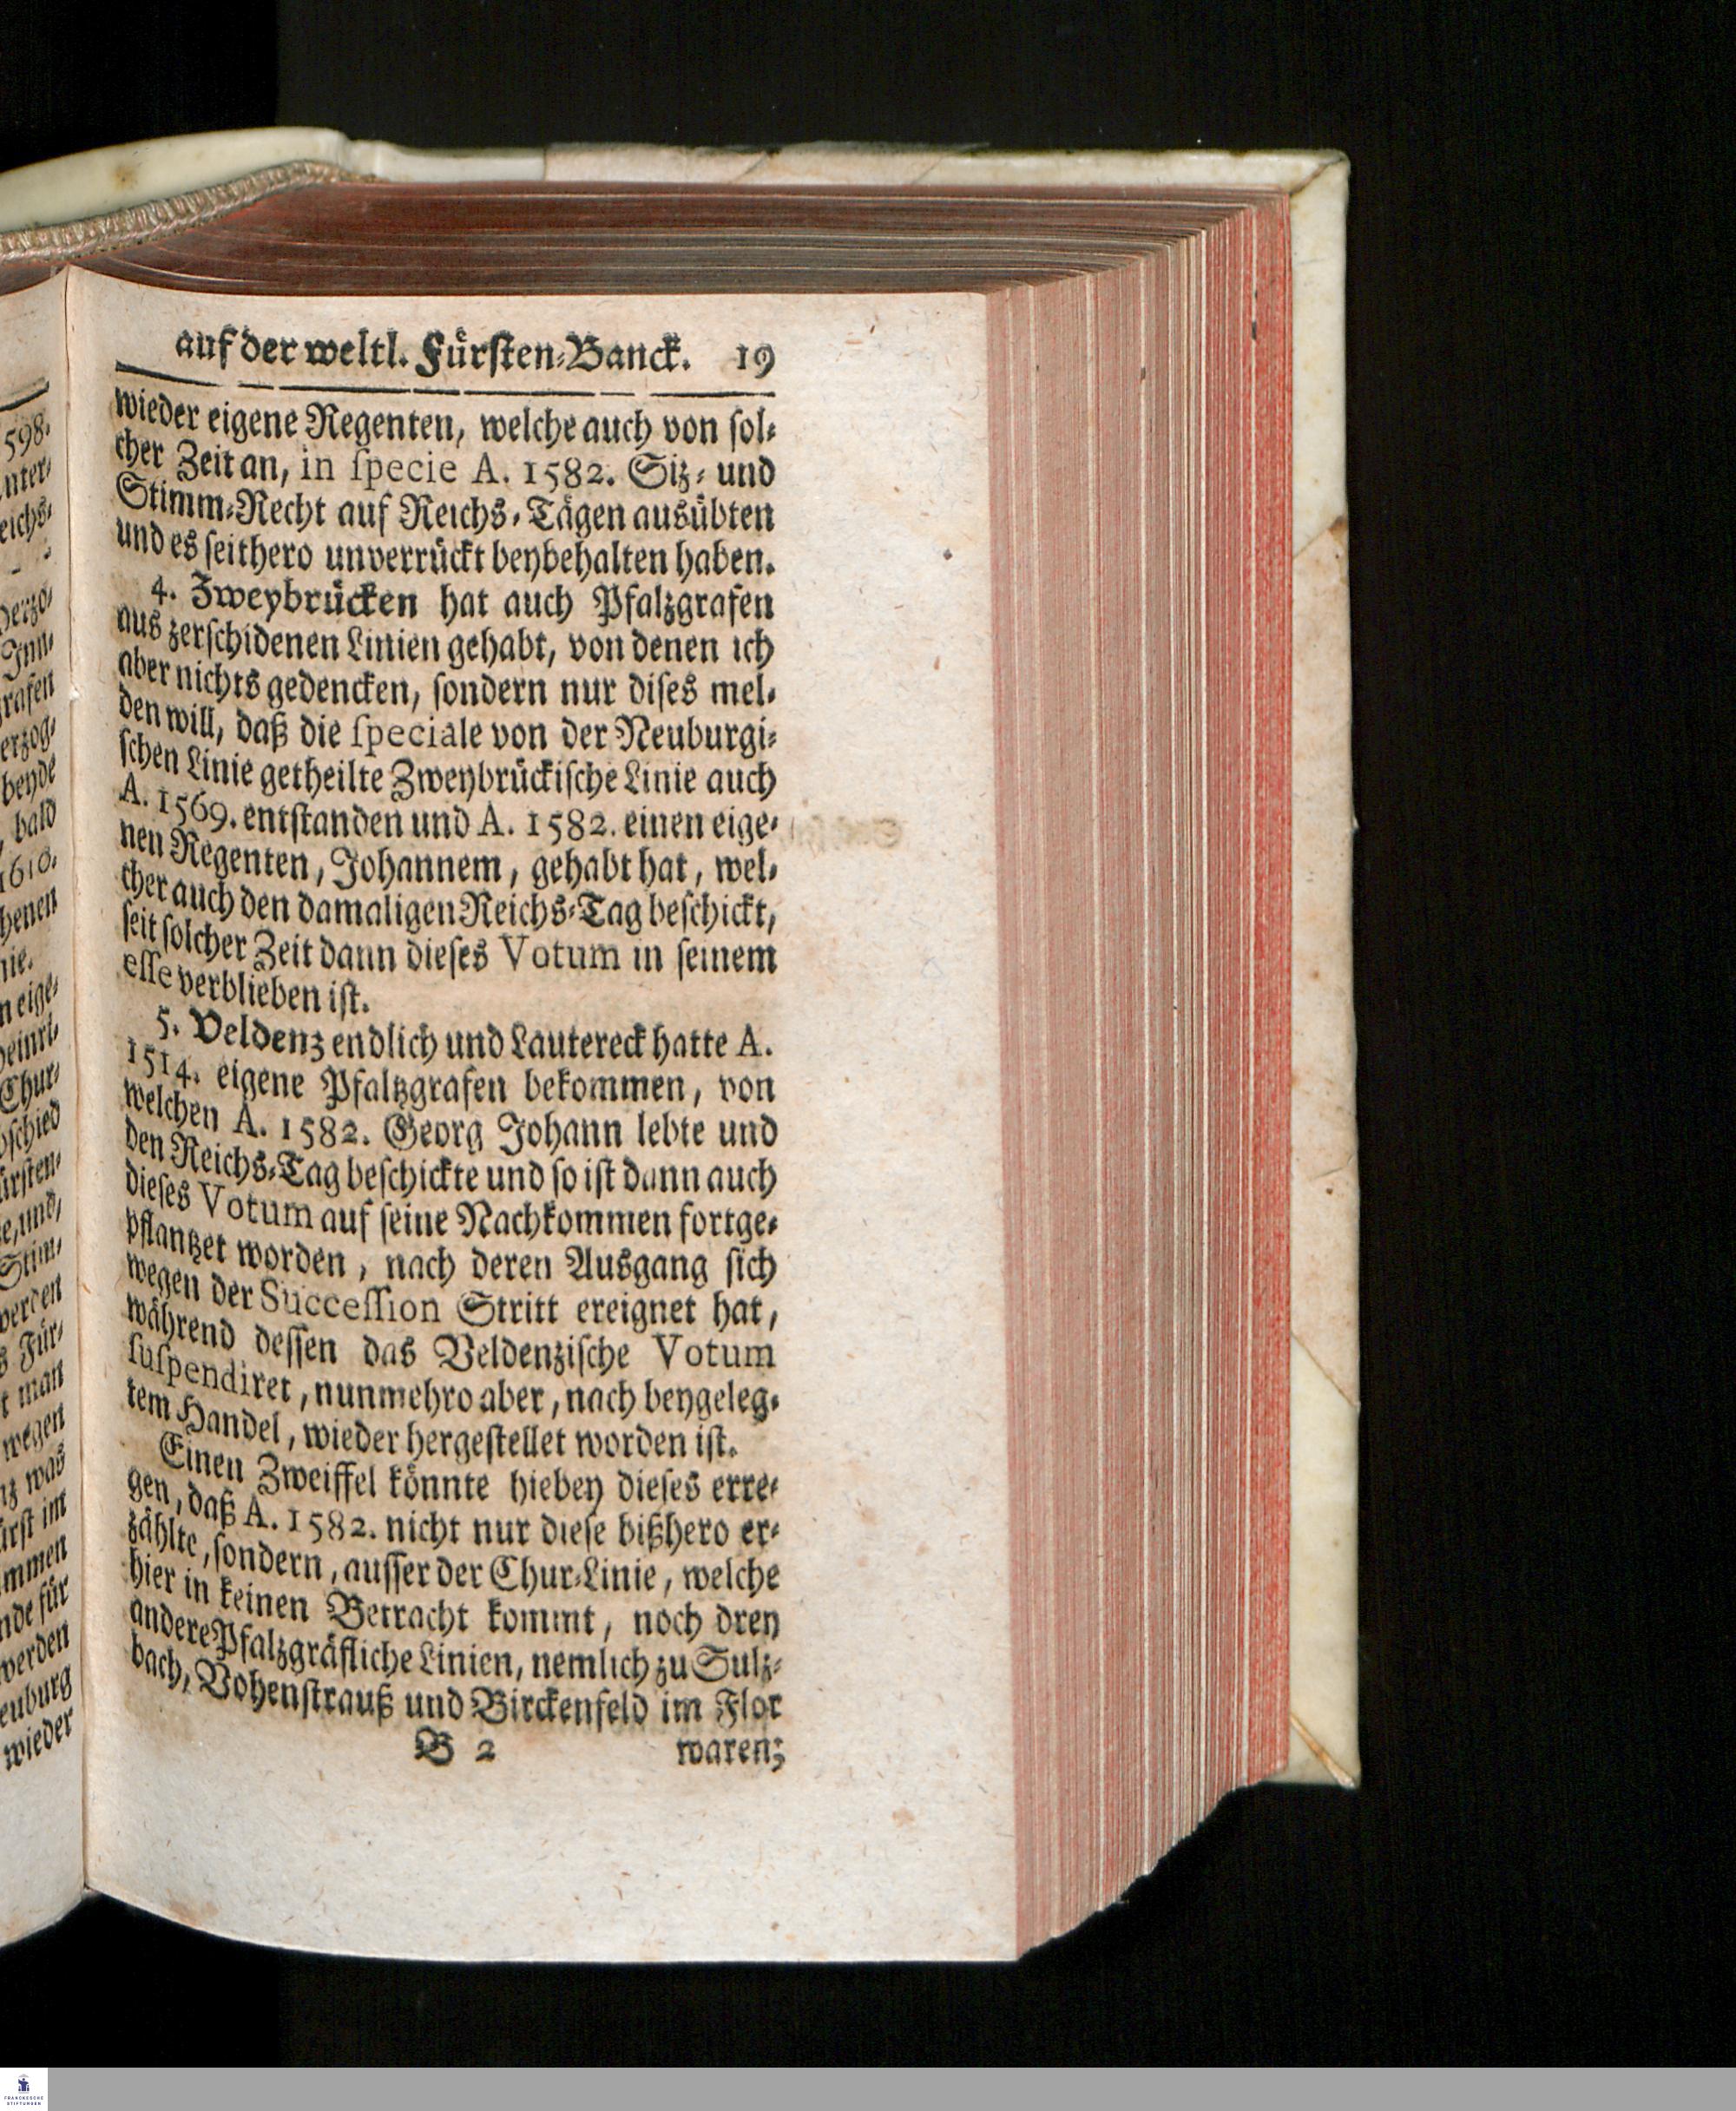 auf der weltl. Fürsten-Banck. 19
wieder eigene Regenten, welche auch von sol-
cher Zeit an, in specie A. 1582. Siz- und
Stimm-Recht auf Reichs-Tägen ausübten
und es seithero unverrückt beybehalten haben.
4. Zweybrücken hat auch Pfalzgrafen
aus zerschidenen Linien gehabt, von denen ich
aber nichts gedencken, sondern nur dises mel-
den will, daß die speciale von der Neuburgi-
schen Linie getheilte Zweybrückische Linie auch
A. 1569. entstanden und A. 1582. einen eige-
nen Regenten, Johannem, gehabt hat, wel-
cher auch den damaligen Reichs-Tag beschickt,
seit solcher Zeit dann dieses Votum in seinem
esse verblieben ist.
5. Veldenz endlich und Lautereck hatte A.
1514. eigene Pfaltzgrafen bekommen, von
welchen A. 1582. Georg Johann lebte und
den Reichs-Tag beschickte und so ist dann auch
dieses Votum auf seine Nachkommen fortge-
pflantzet worden, nach deren Ausgang sich
wegen der Succession Stritt ereignet hat,
während dessen das Veldenzische Votum
suspendiret, nunmehro aber, nach beygeleg-
tem Handel, wieder hergestellet worden ist.
Einen Zweiffel könnte hiebey dieses erre-
gen, daß A. 1582. nicht nur diese bißhero er-
zählte, sondern, ausser der Chur-Linie, welche
hier in keinen Betracht kommt, noch drey
andere Pfalzgräfliche Linien, nemlich zu Sulz-
bach, Vohenstrauß und Birckenfeld im Flor
B 2 waren;
598.
nter-
eichs-
Herzo-
Inn-
grafen
erzog-
beyde
, bald
1610.
henen
nie.
n eige-
Heinri-
Chur-
bschied
ürsten-
e, und,
Stim-
werden
s Für-
t man
wegen
nz was
ürst im
ommen
nde für
werden
euburg
wieder
FRANCKESCHE
STIFTUNGEN